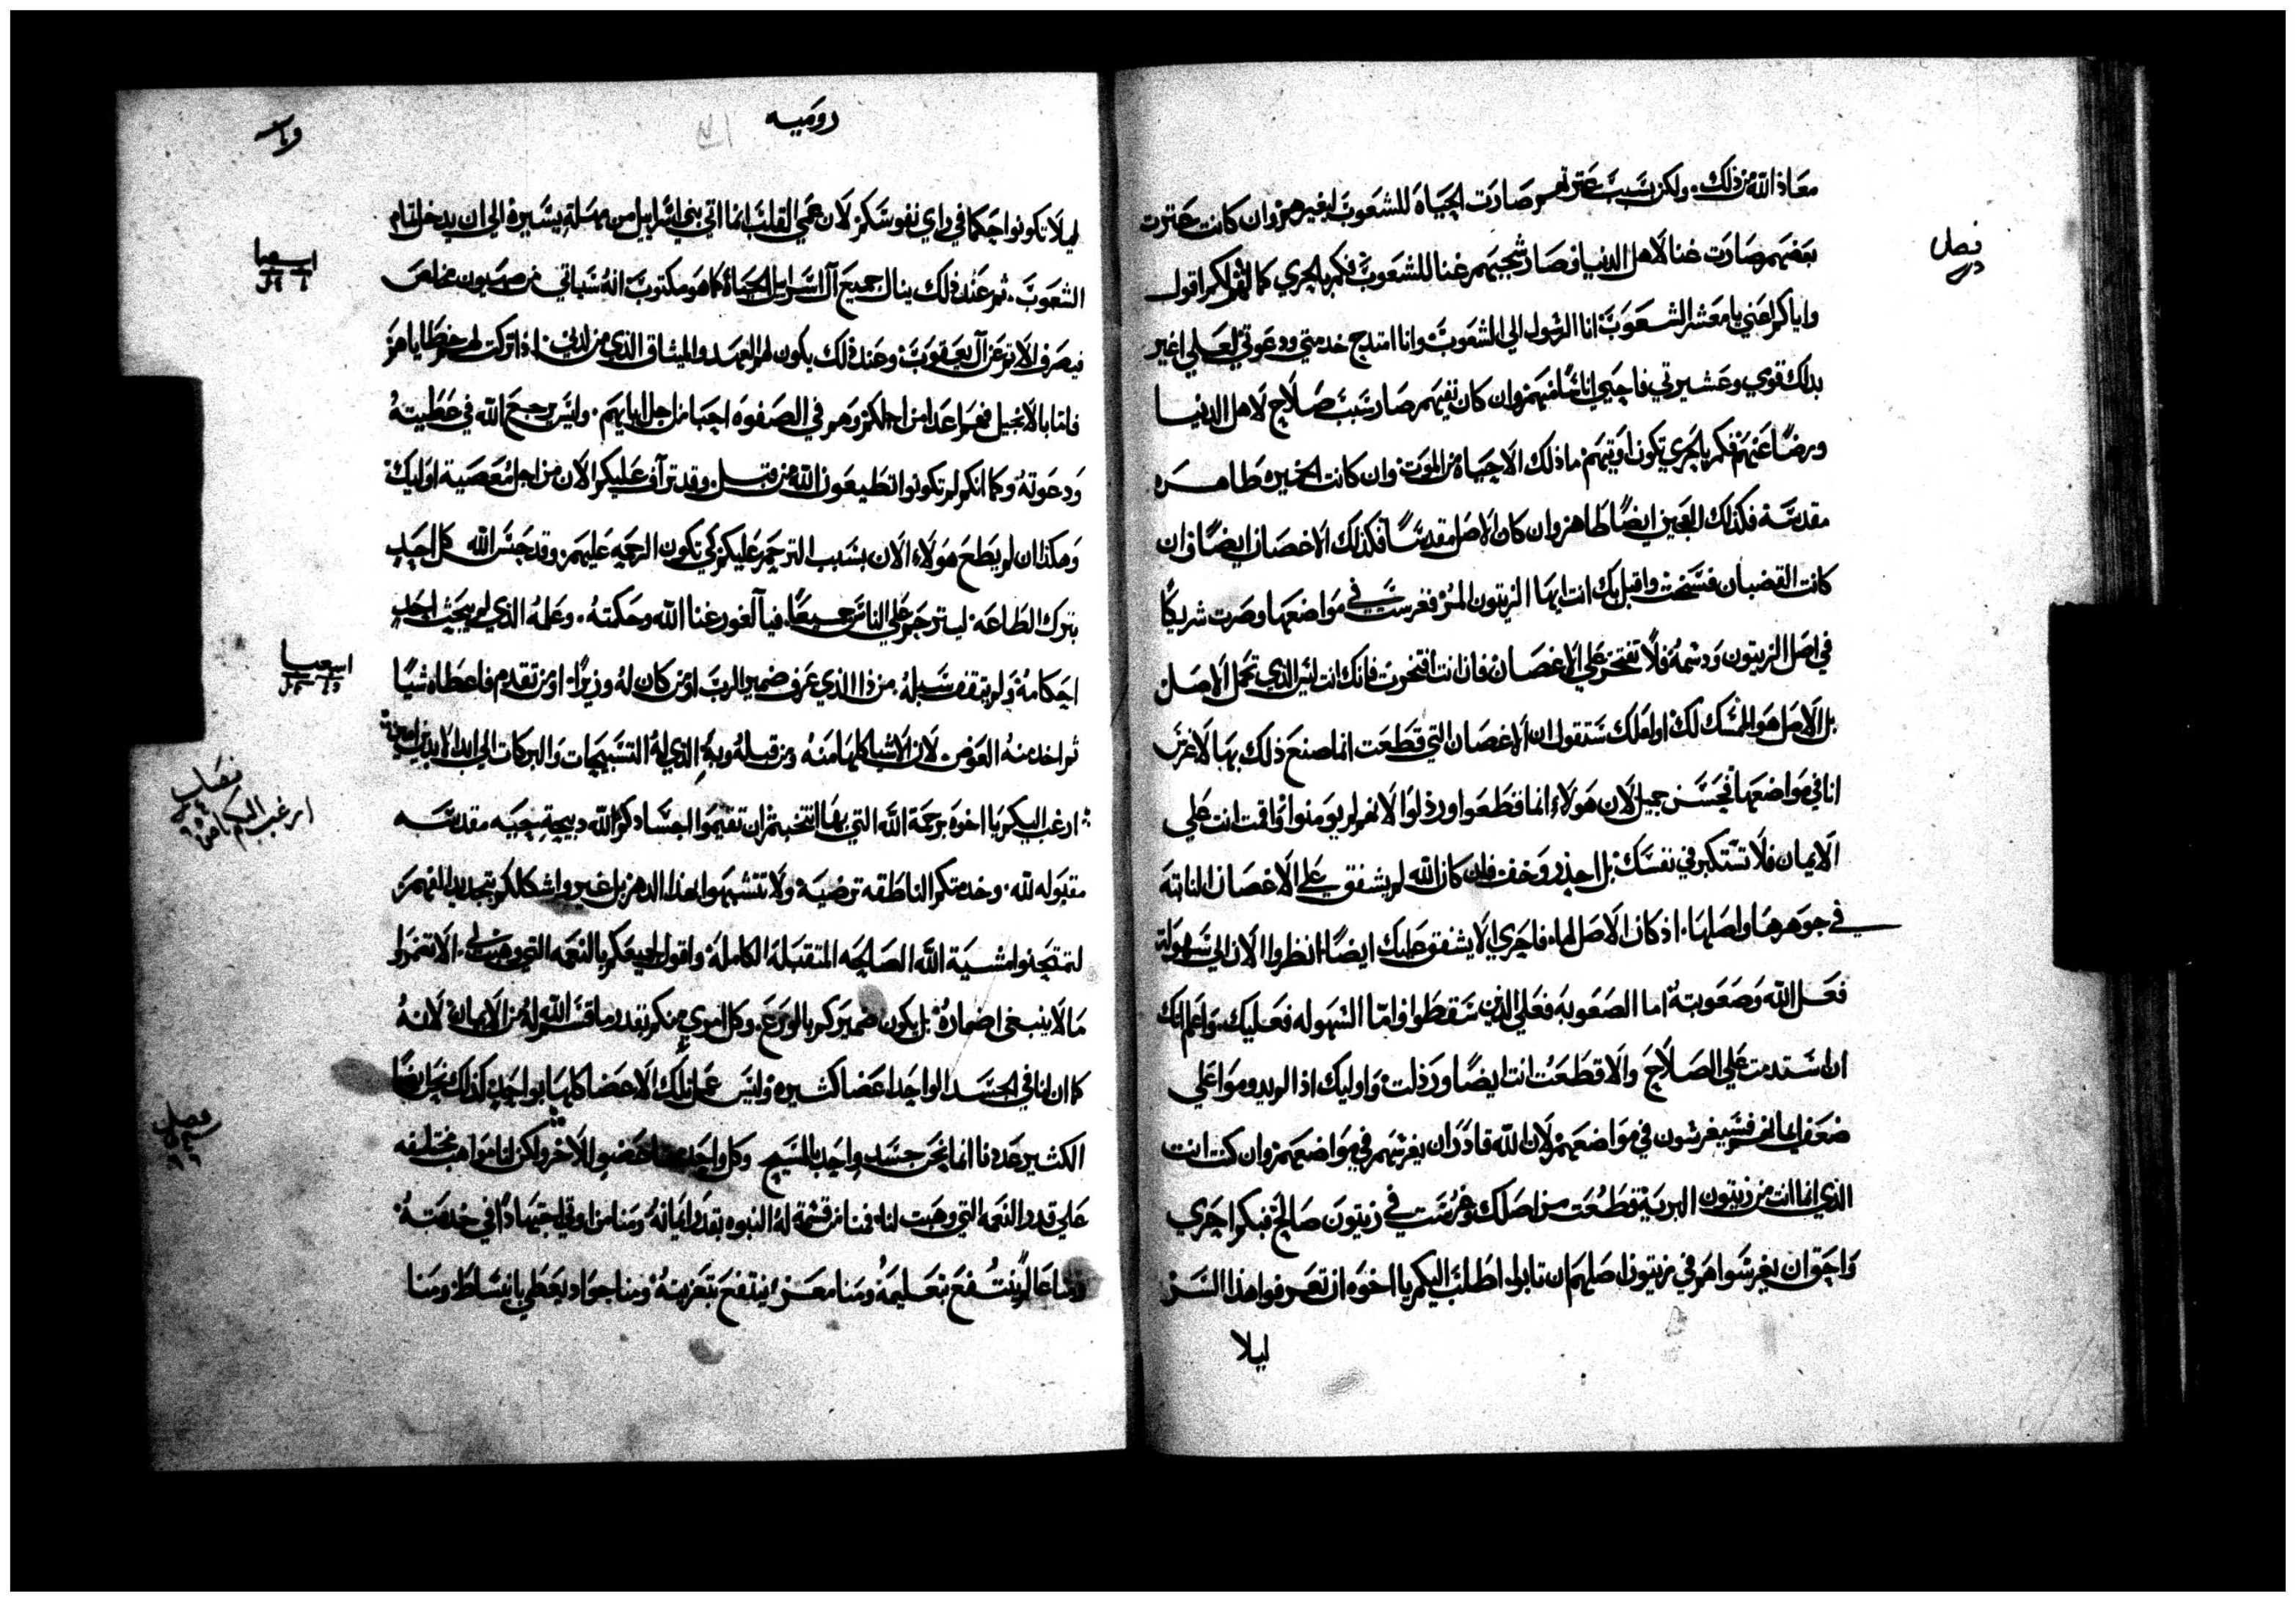 معاذ الله من ذلك. ولكن بسبب عثرتهم صارت الحياة للشعوب لغيرهم وان كانت عثرت
فصل
بعضهم صارت غنا لاهل الدنيا وصار شجبهم غنا للشعوب فكم بالحري كمالهم لكم اقول
واياكم اعني يا معشر الشعوب انا الرسول الي الشعوب وانا امتدح خدمتي ودعوتي لعلي اغير
بذلك قومي وعشيرتي فاحيي اناسًا منهم وان كان نفيهم صار سبب صلاح لاهل الدنيا
ورضًا عنهم فكم بالحري تكون اوبتهم ماذلك الا حياة من الموت وان كانت الخميره طاهره
مقدسة فكذلك العجين ايضًا طاهر وان كان الاصل مقدسًا فكذلك الاغصان ايضًا وان
كانت القضبان فسخت واقبل بك انت ايها الزيتون المر فغرست في مواضعها وصرت شريكًا
في اصل الزيتون ودسمه فلا تفتخر علي الاغصان فان انت افتخرت فانك انت ليس الذي تحمل الاصل
بل الاصل هو الممسك لك او لعلك ستقول ان الاغصان التي قطعت انما صنع ذلك بها لاغرس
انا في مواضعها فحسن جميل لان هولاء انما قطعوا ورذلوا لانهم لم يومنوا واقمت انت علي
الايمان فلا تستكبر في نفسك بل احذر وخف فان كان الله لم يشفق علي الاغصان النابتة
في جوهرها واصلها. اذ كان الاصل لها. فاحري الا يشفق عليك ايضًا انظروا الان الي سهولة
فعل الله وصعوبته اما الصعوبة فعلي الذين سقطوا واما السهوله فعليك. واعلم انك
ان استدمت علي الصلاح والا قطعت انت ايضًا ورذلت واوليك اذا لم يدوموا علي
ضعف ايمانهم فسيغرسون في مواضعهم لان الله قادر ان يغرسهم في مواضعهم وان كنت انت
الذي انما انت من زيتون البرية قطعت من اصلك وغرست في زيتون صالح فبكم احري
واحق ان يغرسوا هم في زيتون اصلهم ان تابوا اطلب اليكم يا اخوه ان تعرفوا هذا السر
ليلا
روميه
ليلا تكونوا حكما في راي نفوسكم لان عمي القلب انما اتي بني اسراييل من مهلة يسيرة الي ان يدخل تمام
اسعيا
الشعوب. ثم عند ذلك ينال جميع آل اسراييل الحياة كما هو مكتوب انه سياتي من صهيون مخلص
فيصرف الاثم عن آل يعقوب وعند ذلك يكون لهم العهد والميثاق الذي من لدني. اذا تركت لهم خطاياهم
فاما بالانجيل فهم اعدا من اجلكم وهم في الصفوه احبا من اجل ابايهم. وليس يرجع الله في عطيته
ودعوته وكما انكم لم تكونوا تطيعون الله من قبل. وقد ترآف عليكم الان من اجل معصية اوليك
وهكذا ان لم يطع هولاء الان بسبب الترحم عليكم كي تكون الرحمه عليهم وقد حبس الله كل احد
بترك الطاعه. ليترحم علي الناس جميعًا. فيا لغور غنا الله وحكمته. وعلمه الذي لم يبحث احد
اسعيا
احكامه ولم يقف سبيله. من ذا الذي عرف ضمير الرب او من كان له وزيرًا. او من تقدم فاعطاه شيًا
ثم اخذ منه العوض. لان الاشيا كلها منه ومن قبله وبه. الذي له التسبيحات والبركات الي ابد الابدين امين
فصل
ارغب اليكم يا اخوه برحمة الله التي بها انتخبتم ان تقيموا اجسادكم لله دبيحة حيه مقدسه
مقبوله لله. وخدمتكم الناطقه ترضيه ولا تتشبهوا بهذا الدهر بل غيروا اشكالكم بتجديد الفهم من
لتمتحنوا مشية الله الصالحه المتقبله الكامله واقول لجميعكم بالنعمه التي وهبت لي. الا تضمروا
مالا ينبغي اضماره بل يكون ضميركم بالورع وكل امري منكم بقدر ما قسم الله له من الايمان لانه
كما ان لنا في الجسد الواحد اعضا كثيره وليس عمل تلك الاعضا كلها بواحد كذلك نحن ايضًا
فصل
الكثير عددنا انما نحن جسد واحد بالمسيح وكل واحد منا عضوا للاخر ولكن لنا مواهب مختلفه
علي قدر النعمه التي وهبت لنا. فمنا من قسمة له النبوه بقدر ايمانه ومنا من اوتي اجتهادًا في خدمته
ومنا عالم ينتفع بتعليمه ومنا معز ينتفع بتعزيته ومنا جواد يعطي بانبساط ومنا